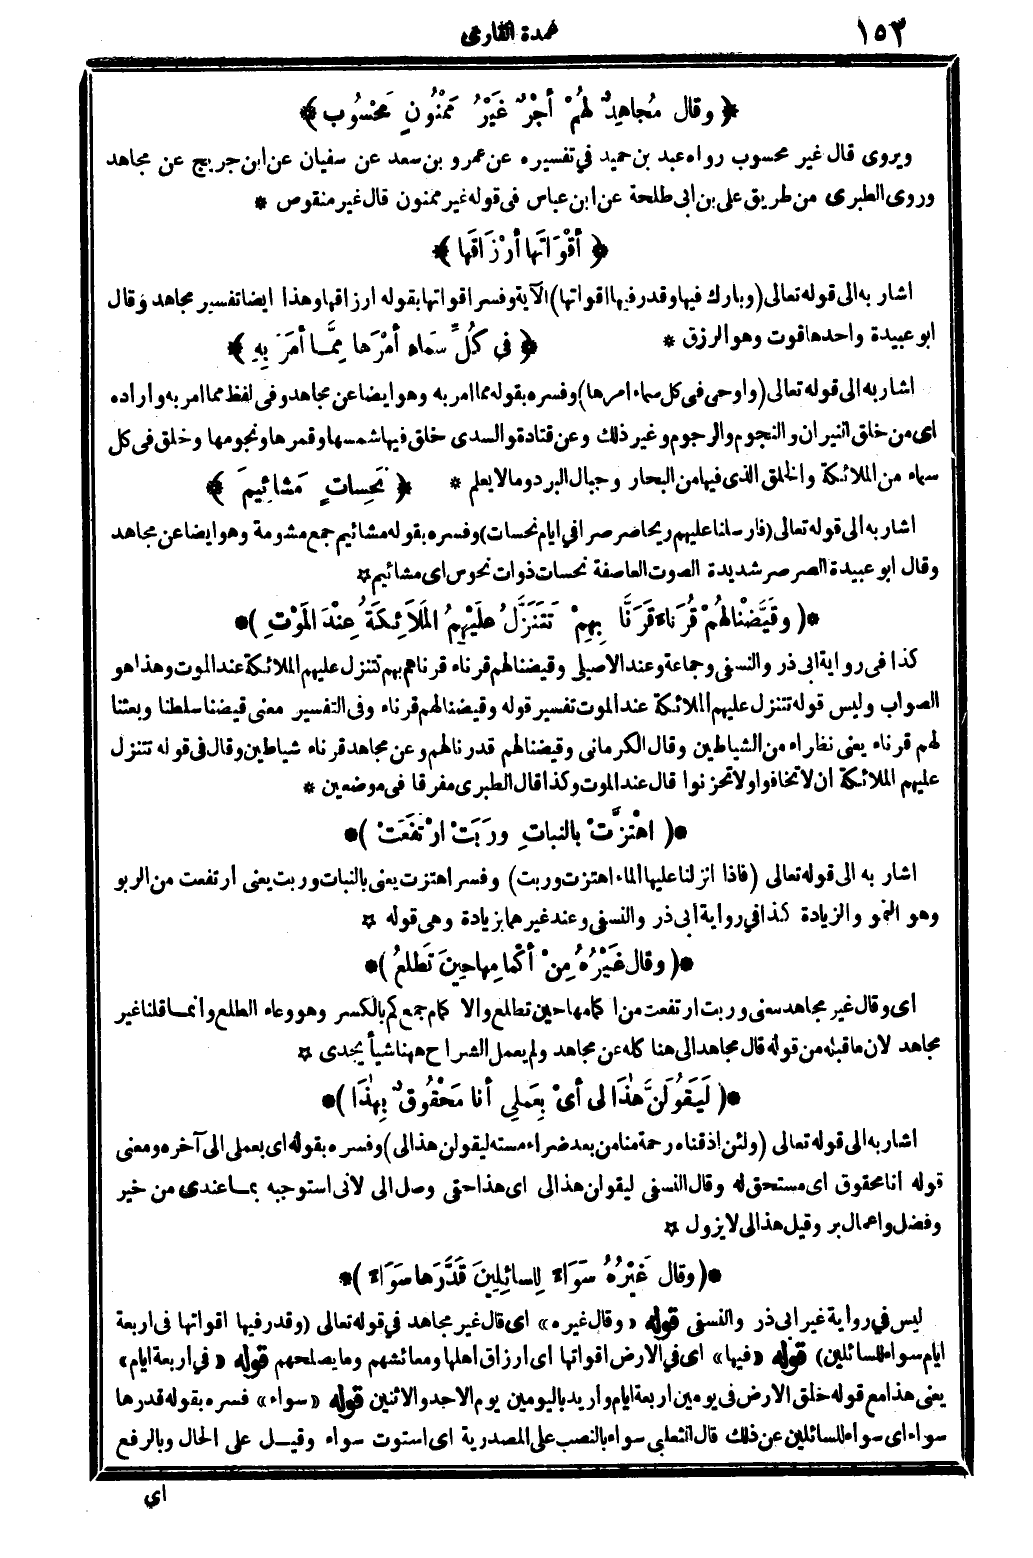 ١٥٣
عمدة القارى
﴿ وقال مُجاهِدٌ لَهُمْ أجْرٌ غَيْرُ مَمْنُونٍ مَحْسُوب ﴾
ويروى قال غير محسوب رواه عبد بن حميد في تفسيره عن عمرو بن سعد عن سفيان عن ابن جريج عن مجاهد
وروى الطبرى من طريق على بن ابى طلحة عن ابن عباس فى قوله غير ممنون قال غير منقوص *
﴿ أقْوَاتَها أرْزَاقَها ﴾
اشار به الى قوله تعالى (وبارك فيها وقدر فيها اقواتها) الآية وفسر اقواتها بقوله ارزاقها وهذا ايضا تفسير مجاهد وقال
ابو عبيدة واحدها قوت وهو الرزق *
﴿ فى كُلِّ سَماء أمْرَها مِمَّا أمَرَ بِهِ ﴾
اشار به الى قوله تعالى (واوحى فى كل سماء امرها) وفسره بقوله مما امر به وهو ايضا عن مجاهد وفى لفظ مما امر به واراده
اى من خلق النيران والنجوم والرجوم وغير ذلك وعن قتادة والسدى خلق فيها شمسها وقمرها ونجومها وخلق فى كل
سماء من الملائكة والخلق الذى فيها من البحار وجبال البرد وما لا يعلم *
﴿ نَحِساتٍ مَشائِيمَ ﴾
اشار به الى قوله تعالى (فارسلنا عليهم ريحا صرصرا في ايام نحسات) وفسره بقوله مشائيم جمع مشومة وهو ايضا عن مجاهد
وقال ابو عبيدة الصرصر شديدة الصوت العاصفة نحسات ذوات نحوس اى مشائيم *
*( وقَيَّضْنا لهُمْ قُرَناءَ قَرَنَّا بِهِمْ تَتَنَزَّلُ عَلَيْهِمُ المَلَائِكَةُ عِنْدَ المَوْتِ )*
كذا فى رواية ابى ذر والنسفى وجماعة وعند الاصيلى وقيضنا لهم قرناء قرناهم بهم تتنزل عليهم الملائكة عند الموت وهذا هو
الصواب وليس قوله تتنزل عليهم الملائكة عند الموت تفسير قوله وقيضنا لهم قرناء وفى التفسير معنى قيضنا سلطنا وبعثنا
لهم قرناء يعنى نظراء من الشياطين وقال الكرمانى وقيضنا لهم قدرنا لهم وعن مجاهد قرناء شياطين وقال فى قوله تتنزل
عليهم الملائكة ان لا تخافوا ولا تحزنوا قال عند الموت وكذا قال الطبرى مفرقا فى موضعين *
*( اهْتزَّتْ بالنباتِ ورَبَتْ ارْتَفَعَتْ )*
اشار به الى قوله تعالى (فاذا انزلنا عليها الماء اهتزت وربت) وفسر اهتزت يعنى بالنبات وربت يعنى ارتفعت من الربو
وهو النمو والزيادة كذا في رواية ابى ذر والنسفى وعند غيرهما بزيادة وهى قوله *
*( وقال غَيْرُهُ مِنْ أكْمامِها حِينَ تَطْلعُ )*
اى وقال غير مجاهد معنى وربت ارتفعت من اكمامها حين تطلع والاكمام جمع كم بالكسر وهو وعاء الطلع وانما قلنا غير
مجاهد لان ما قبله من قوله قال مجاهد الى هنا كله عن مجاهد ولم يعمل الشراح ههنا شيأ يجدى *
*( لَيَقُولَنَّ هٰذَا لى أىْ بِعَمَلِى أنا مَحْقُوقٌ بِهٰذَا )*
اشار به الى قوله تعالى (ولئن اذقناه رحمة منا من بعد ضراء مسته ليقولن هذا لى) وفسره بقوله اى بعملى الى آخره ومعنى
قوله انا محقوق اى مستحق له وقال النسفى ليقولن هذا لى اى هذا حقى وصل الى لانى استوجبه بما عندى من خير
وفضل واعمال بر وقيل هذا لى لا يزول *
*( وقال غَيْرُهُ سَوَاءً لِلسائِلِينَ قَدَّرَها سَوَاءً )*
ليس في رواية غير ابى ذر والنسفى قوله «وقال غيره» اى قال غير مجاهد في قوله تعالى (وقدر فيها اقواتها فى اربعة
ايام سواء للسائلين) قوله «فيها» اى في الارض اقواتها اى ارزاق اهلها ومعائشهم وما يصلحهم قوله «في اربعة ايام»
يعنى هذا مع قوله خلق الارض فى يومين اربعة ايام واريد باليومين يوم الاحد والاثنين قوله «سواء» فسره بقوله قدرها
سواء اى سواء للسائلين عن ذلك قال الثعلبى سواء بالنصب على المصدرية اى استوت سواء وقيل على الحال وبالرفع
اى